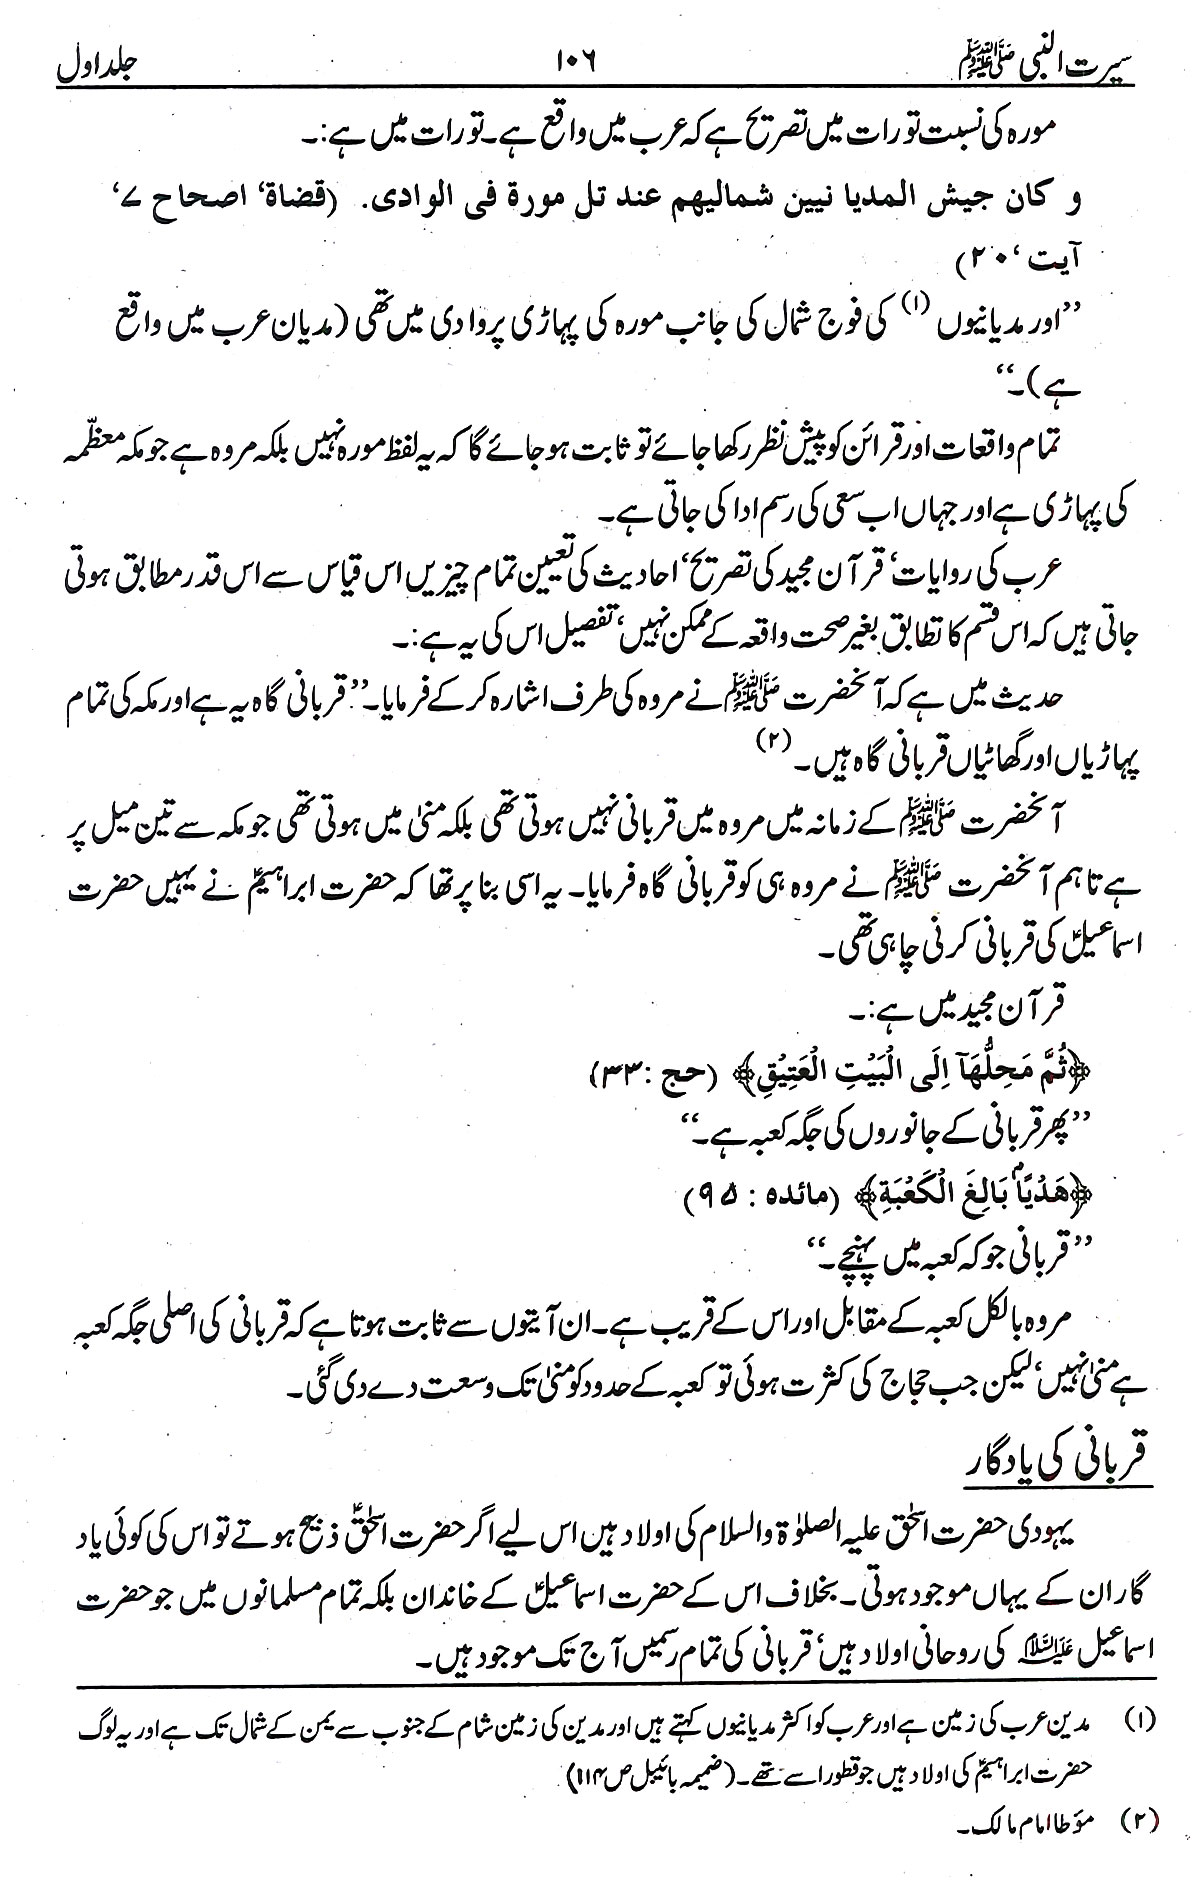 سیرت النبی ﷺ ۱۰۶ جلد اول
مورہ کی نسبت تورات میں تصریح ہے کہ عرب میں واقع ہے۔ تورات میں ہے:۔
و کان جیش المدیا نیین شمالیهم عند تل مورة فی الوادی. (قضاة‘ اصحاح ۷‘
آیت ‘۲۰)
’’اور مدیانیوں (۱) کی فوج شمال کی جانب مورہ کی پہاڑی پر وادی میں تھی (مدیان عرب میں واقع
ہے)۔‘‘
تمام واقعات اور قرائن کو پیش نظر رکھا جائے تو ثابت ہو جائے گا کہ یہ لفظ مورہ نہیں بلکہ مروہ ہے جو مکہ معظّمہ
کی پہاڑی ہے اور جہاں اب سعی کی رسم ادا کی جاتی ہے۔
عرب کی روایات‘ قرآن مجید کی تصریح‘ احادیث کی تعیین تمام چیزیں اس قیاس سے اس قدر مطابق ہوتی
جاتی ہیں کہ اس قسم کا تطابق بغیر صحت واقعہ کے ممکن نہیں‘ تفصیل اس کی یہ ہے:۔
حدیث میں ہے کہ آنحضرت ﷺ نے مروہ کی طرف اشارہ کر کے فرمایا۔’’ قربانی گاہ یہ ہے اور مکہ کی تمام
پہاڑیاں اور گھاٹیاں قربانی گاہ ہیں۔ (۲)
آنحضرت ﷺ کے زمانہ میں مروہ میں قربانی نہیں ہوتی تھی بلکہ منیٰ میں ہوتی تھی جو مکہ سے تین میل پر
ہے تاہم آنحضرت ﷺ نے مروہ ہی کو قربانی گاہ فرمایا۔ یہ اسی بنا پر تھا کہ حضرت ابراہیمؑ نے یہیں حضرت
اسماعیلؑ کی قربانی کرنی چاہی تھی۔
قرآن مجید میں ہے:۔
﴿ثُمَّ مَحِلُّهَآ اِلَی الْبَیْتِ الْعَتِیْقِ﴾ (حج :۳۳)
’’پھر قربانی کے جانوروں کی جگہ کعبہ ہے۔‘‘
﴿هَدْیًاۢ بَالِغَ الْکَعْبَةِ﴾ (مائدہ : ۹۵)
’’قربانی جو کہ کعبہ میں پہنچے۔‘‘
مروہ بالکل کعبہ کے مقابل اور اس کے قریب ہے۔ ان آیتوں سے ثابت ہوتا ہے کہ قربانی کی اصلی جگہ کعبہ
ہے منیٰ نہیں‘ لیکن جب حجاج کی کثرت ہوئی تو کعبہ کے حدود کو منیٰ تک وسعت دے دی گئی۔
قربانی کی یادگار
یہودی حضرت اسحٰق علیہ الصلوٰۃ والسلام کی اولاد ہیں اس لیے اگر حضرت اسحٰقؑ ذبیح ہوتے تو اس کی کوئی یاد
گار ان کے یہاں موجود ہوتی۔ بخلاف اس کے حضرت اسماعیلؑ کے خاندان بلکہ تمام مسلمانوں میں جو حضرت
اسماعیل علیہ السلام کی روحانی اولاد ہیں‘ قربانی کی تمام رسمیں آج تک موجود ہیں۔
(۱) مدین عرب کی زمین ہے اور عرب کو اکثر مدیانیوں کہتے ہیں اور مدین کی زمین شام کے جنوب سے یمن کے شمال تک ہے اور یہ لوگ
حضرت ابراہیمؑ کی اولاد ہیں جو قطورا سے تھے۔ (ضمیمہ بائیبل ص۱۱۴)
(۲) مؤطا امام مالک۔